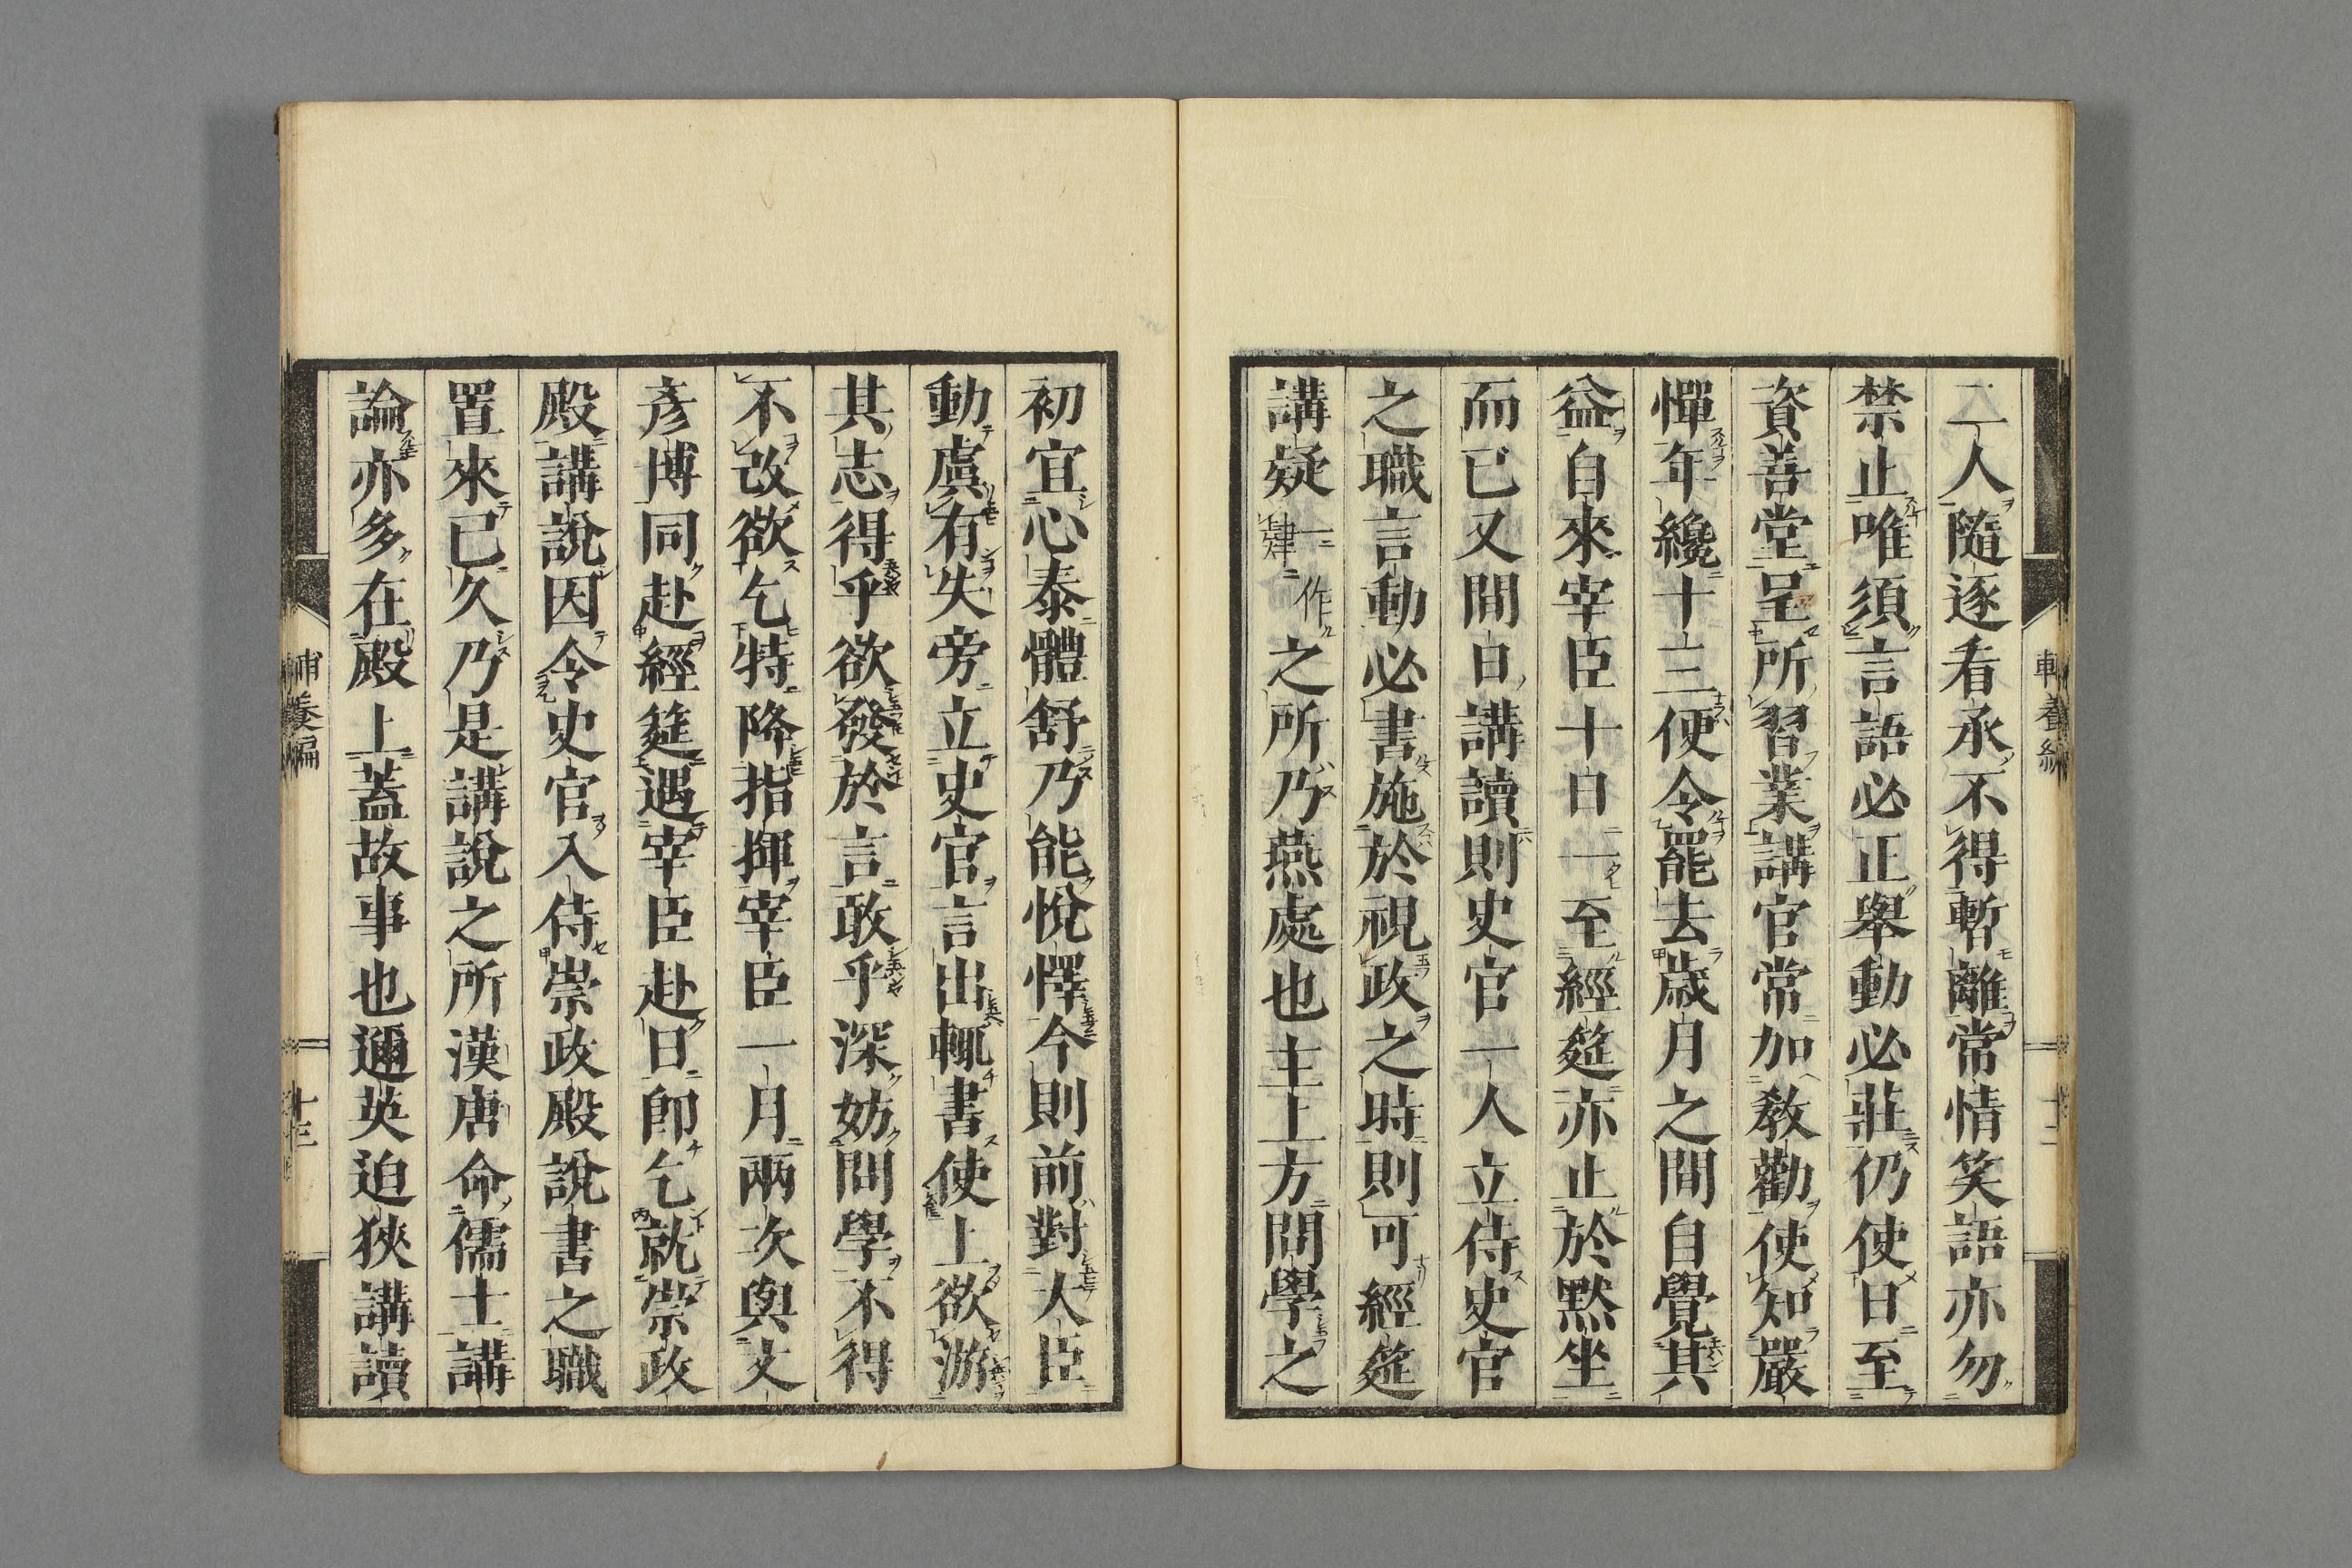 二人隨逐看承不得暫離常情笑語亦勿
禁止唯須言語必正舉動必莊仍使日至
資善堂呈所習業講官常加教勸使知嚴
憚年纔十三便令罷去歲月之間自覺其
益自來宰臣十日一至經筵亦止於默坐
而已又間日講讀則史官一人立侍史官
之職言動必書施於視政之時則可經筵
講疑一作肄之所乃燕處也主上方問學之
初宜心泰體舒乃能悅懌今則前對大臣
動虞有失旁立史官言出輒書使上欲游
其志得乎欲發於言敢乎深妨問學不得
不改欲乞特降指揮宰臣一月兩次與文
彥博同赴經筵遇宰臣赴日即乞就崇政
殿講說因令史官入侍崇政殿說書之職
置來已久乃是講說之所漢唐命儒士講
論亦多在殿上蓋故事也邇英迫狹講讀
輔養編
十三